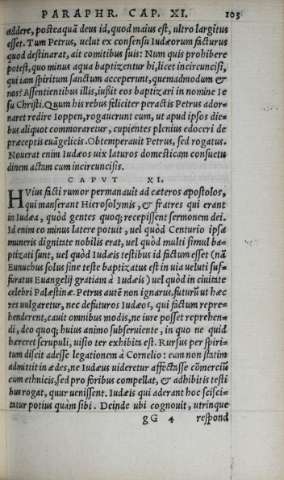 PARAPHR. CAP. XI. 103
addere, posteaquã deus id, quod maius est, ultro largitus
esset. Tum Petrus, uelut ex consensu Iudæorum facturus
quod destinarat, ait comitibus suis: Num quis prohibere
potest, quo minus aqua baptizentur hi, licet incircuncisi,
qui iam spiritum sanctum acceperunt, quemadmodum &
nos? Assentientibus illis, iußit eos baptizari in nomine Ie
su Christi. Quum his rebus feliciter peractis Petrus ador=
naret redire Ioppen, rogauerunt eum, ut apud ipsos die=
bus aliquot commoraretur, cupientes plenius edoceri de
præceptis euãgelicis. Obtemperauit Petrus, sed rogatus.
Nouerat enim Iudæos uix laturos domesticam consuetu
dinem actam cum incircuncisis.
CAPVT XI.
HVius facti rumor permanauit ad cæteros apostolos,
qui manserant Hierosolymis, & fratres qui erant
in Iudæa, quòd gentes quoq; recepissent sermonem dei.
Id enim eo minus latere potuit, uel quòd Centurio ipsa
muneris dignitate nobilis erat, uel quòd multi simul ba=
ptizati sunt, uel quòd Iudæis testibus id factum esset (nã
Eunuchus solus sine teste baptizatus est in uia ueluti suf=
furatus Euangelij gratiam à Iudæis) uel quòd in ciuitate
celebri Palæstinæ. Petrus autẽ non ignarus, futurũ ut hæc
res uulgaretur, nec defuturos Iudæos, qui factum repre=
henderent, cauit omnibus modis, ne iure posset reprehen=
di, deo quoq; huius animo subseruiente, in quo ne quid
hæreret scrupuli, uisio ter exhibita est. Rursus per spiri=
tum discit adesse legationem à Cornelio: eam non statim
admittit in ædes, ne Iudæus uideretur affectasse cõmerciũ
cum ethnicis, sed pro foribus compellat, & adhibitis testi
bus rogat, quur uenissent. Iudæis qui aderant hoc sisci=
tatur potius quàm sibi. Deinde ubi cognouit, utrinque
gG 4 respond